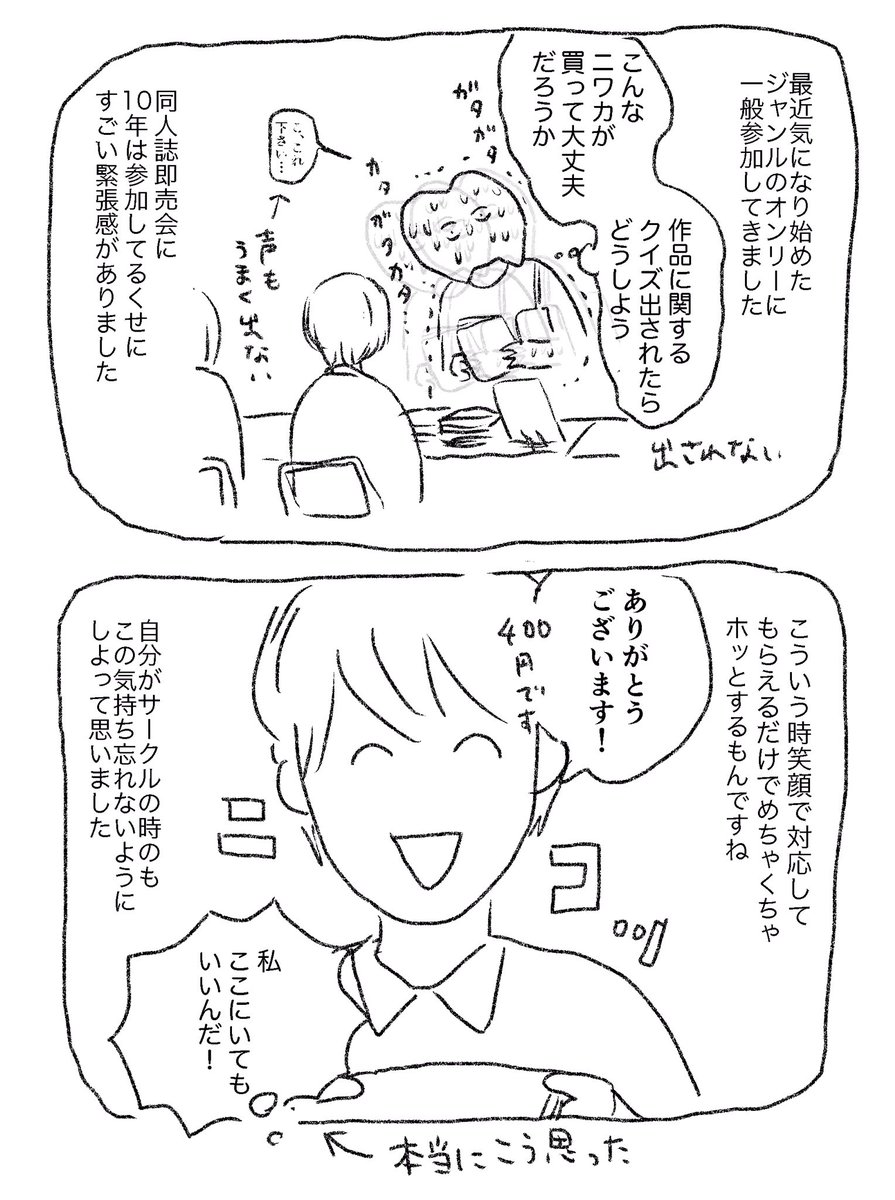 最近気になり始めた
ジャンルのオンリーに
一般参加してきました
こんな
ニワカが
買って大丈夫
だろうか
作品に関する
クイズ出されたら
どうしよう
出されない
ガタ
ガタ
カタ
ガタガタ…
こ、これ
下さい…
声も
うまく出ない
同人誌即売会に
10年は参加してるくせに
すごい緊張感がありました
こういう時笑顔で対応して
もらえるだけでめちゃくちゃ
ホッとするもんですね
ありがとう
ございます!
400円です
ニコッ
自分がサークルの時のも
この気持ち忘れないように
しよって思いました
私
ここにいても
いいんだ!
本当にこう思った